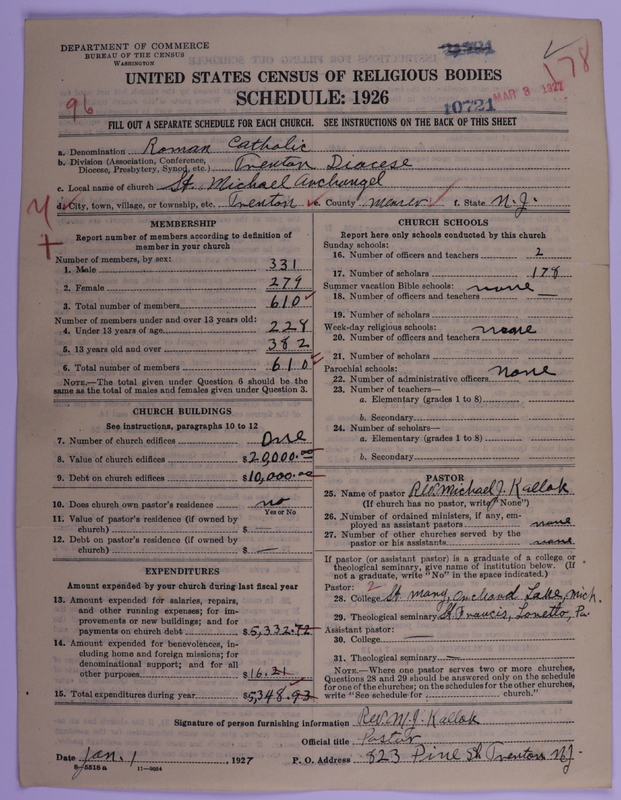 DEPARTMENT OF COMMERCE
BUREAU OF THE CENSUS
WASHINGTON
UNITED STATES CENSUS OF RELIGIOUS BODIES
SCHEDULE: 1926
96
10721
MAR 3 1927
178
FILL OUT A SEPARATE SCHEDULE FOR EACH CHURCH. SEE INSTRUCTIONS ON THE BACK OF THIS SHEET
a. Denomination Roman Catholic
b. Division (Association, Conference, Diocese, Presbytery, Synod, etc.) Trenton Diocese
c. Local name of church St. Michael Archangel
d. City, town, village, or township, etc. Trenton e. County Mercer f. State N.J.
MEMBERSHIP
Report number of members according to definition of
member in your church
Number of members, by sex:
1. Male 331
2. Female 279
3. Total number of members 610
Number of members under and over 13 years old:
4. Under 13 years of age 228
5. 13 years old and over 382
6. Total number of members 610
NOTE.—The total given under Question 6 should be the
same as the total of males and females given under Question 3.
CHURCH BUILDINGS
See instructions, paragraphs 10 to 12
7. Number of church edifices One
8. Value of church edifices $20,000.00
9. Debt on church edifices $10,000.00
10. Does church own pastor's residence no
Yes or No
11. Value of pastor's residence (if owned by
church) $ —
12. Debt on pastor's residence (if owned by
church) $ —
EXPENDITURES
Amount expended by your church during last fiscal year
13. Amount expended for salaries, repairs,
and other running expenses; for im-
provements or new buildings; and for
payments on church debt $5,332.72
14. Amount expended for benevolences, in-
cluding home and foreign missions; for
denominational support; and for all
other purposes $16.21
15. Total expenditures during year $5,348.93
CHURCH SCHOOLS
Report here only schools conducted by this church
Sunday schools:
16. Number of officers and teachers 2
17. Number of scholars 178
Summer vacation Bible schools: none
18. Number of officers and teachers —
19. Number of scholars
Week-day religious schools: none
20. Number of officers and teachers
21. Number of scholars
Parochial schools: none
22. Number of administrative officers
23. Number of teachers—
a. Elementary (grades 1 to 8)
b. Secondary
24. Number of scholars—
a. Elementary (grades 1 to 8)
b. Secondary
PASTOR
25. Name of pastor Rev. Michael J. Kallok
(If church has no pastor, write "None")
26. Number of ordained ministers, if any, em-
ployed as assistant pastors none
27. Number of other churches served by the
pastor or his assistants none
If pastor (or assistant pastor) is a graduate of a college or
theological seminary, give name of institution below. (If
not a graduate, write "No" in the space indicated.)
Pastor: 2
28. College St Mary, Orchard Lake, Mich.
29. Theological seminary St. Francis, Loretto, Pa
Assistant pastor:
30. College —
31. Theological seminary —
NOTE.—Where one pastor serves two or more churches,
Questions 28 and 29 should be answered only on the schedule
for one of the churches; on the schedules for the other churches,
write "See schedule for church."
Signature of person furnishing information Rev. M. J. Kallok
Official title Pastor
Date Jan. 1, 1927 P. O. Address 823 Pine St Trenton N.J.
8-5518 a 11-9034